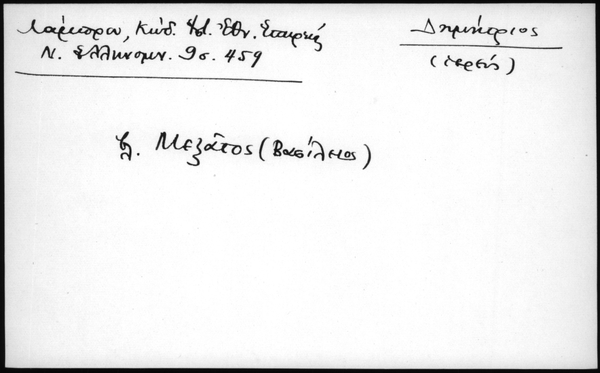 Λάμπρου, Κώδ. Ἱστ. Ἐθν. Ἑταιρείας
Ν. Ἑλληνομν. 9 σ. 459
Δημήτριος
(ἱερεύς)
βλ. Μεζᾶτος (Βασίλειος)